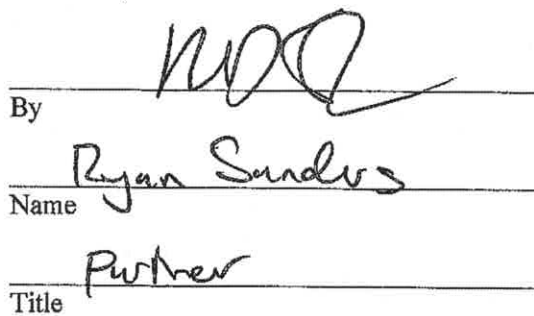 By
Ryan Sanders
Name
Partner
Title